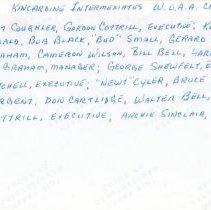 KINCARDINE INTERMEDIATES W.O.A.A. C
COUGHLER, GORDON COTTRILL, EXECUTIVE, K
ALD, BOB BLACK, "BUD" SMALL, GERARD
AHAM, CAMERON WILSON, BILL BELL, HAR
GRAHAM, MANAGER; GEORGE SHEWFELT, E
CHELL, EXECUTIVE; "NEWT" CYLER, BRUCE
RBENT, DON CARTLIDGE, WALTER BELL,
TTRILL, EXECUTIVE; ARCHIE SINCLAIR,